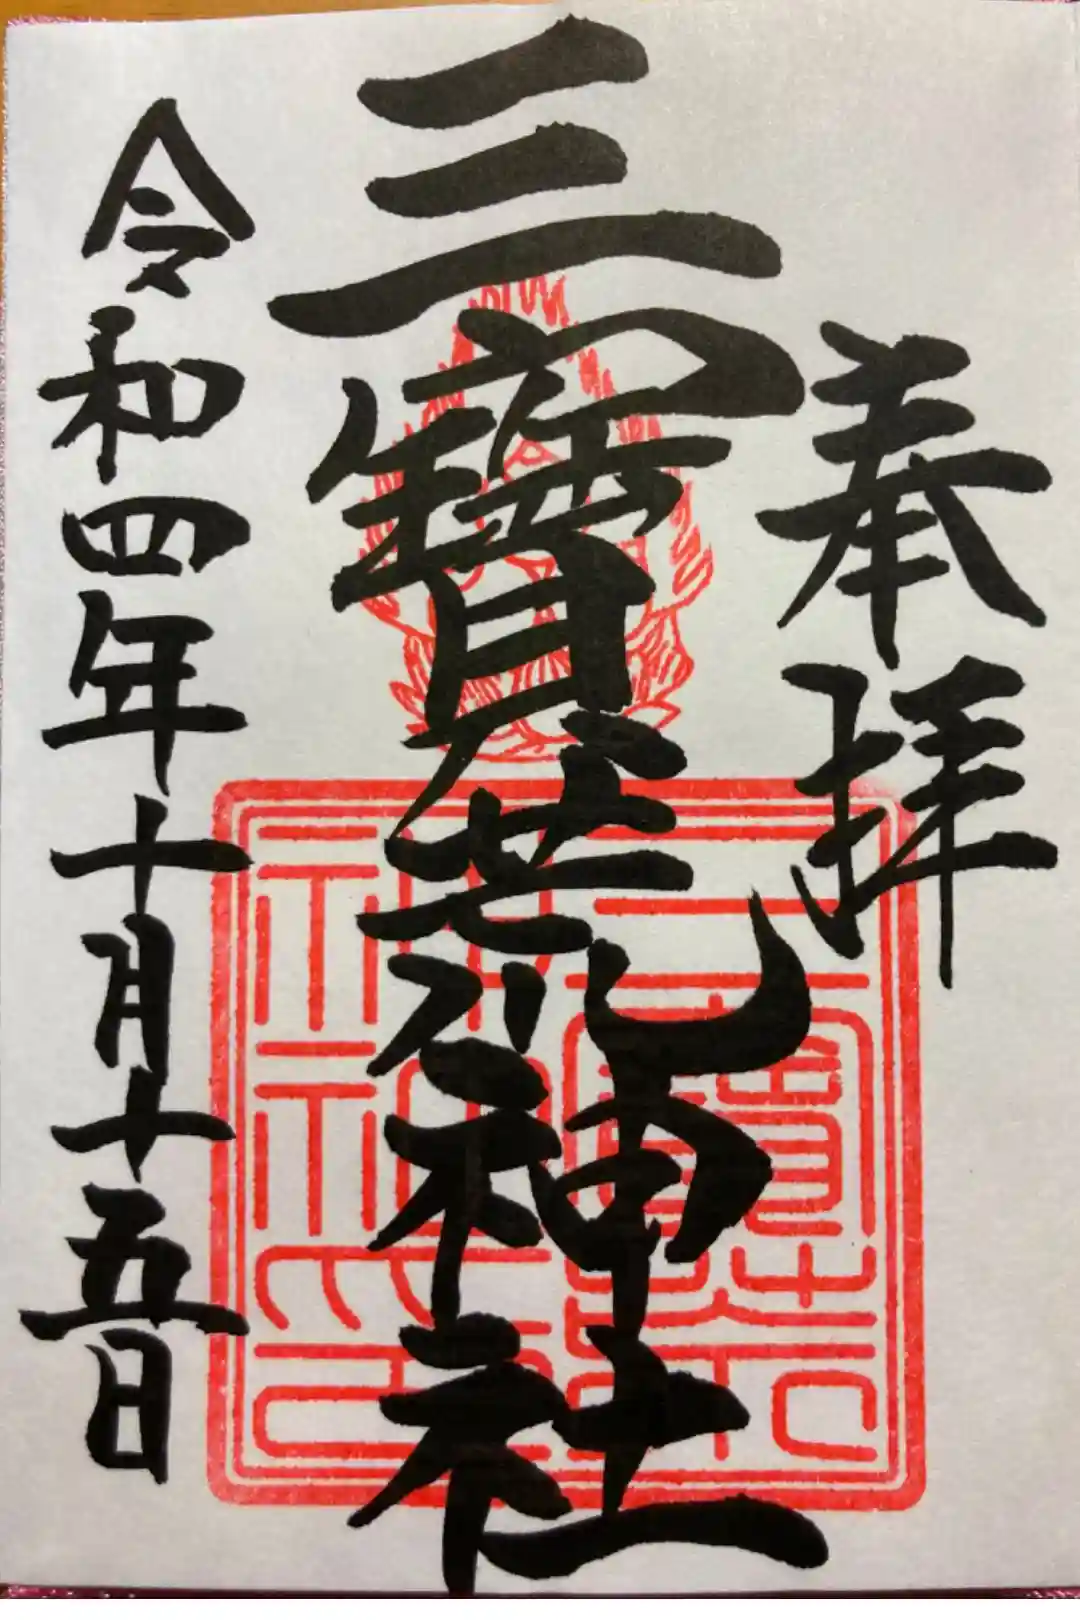 奉拝
三寳荒神社
令和四年十月十五日